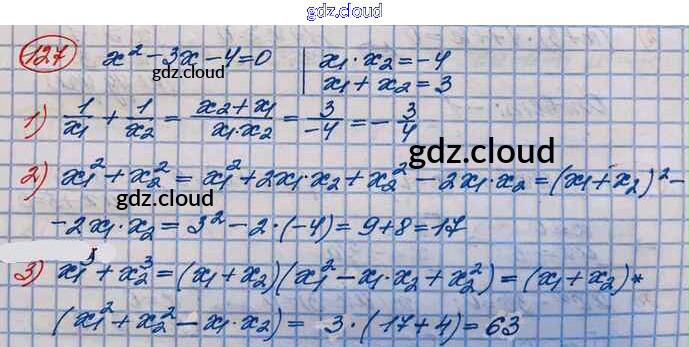 gdz.cloud
127 x² - 3x - 4 = 0 | x₁ · x₂ = -4
gdz.cloud x₁ + x₂ = 3
1) 1/x₁ + 1/x₂ = x₂ + x₁/x₁ · x₂ = 3/-4 = -3/4
gdz.cloud
2) x₁² + x₂² = x₁² + 2x₁ · x₂ + x₂² - 2x₁ · x₂ = (x₁ + x₂)² -
gdz.cloud
- 2x₁ · x₂ = 3² - 2 · (-4) = 9 + 8 = 17
3) x₁³ + x₂³ = (x₁ + x₂)(x₁² - x₁ · x₂ + x₂²) = (x₁ + x₂) *
(x₁² + x₂² - x₁ · x₂) = 3 · (17 + 4) = 63